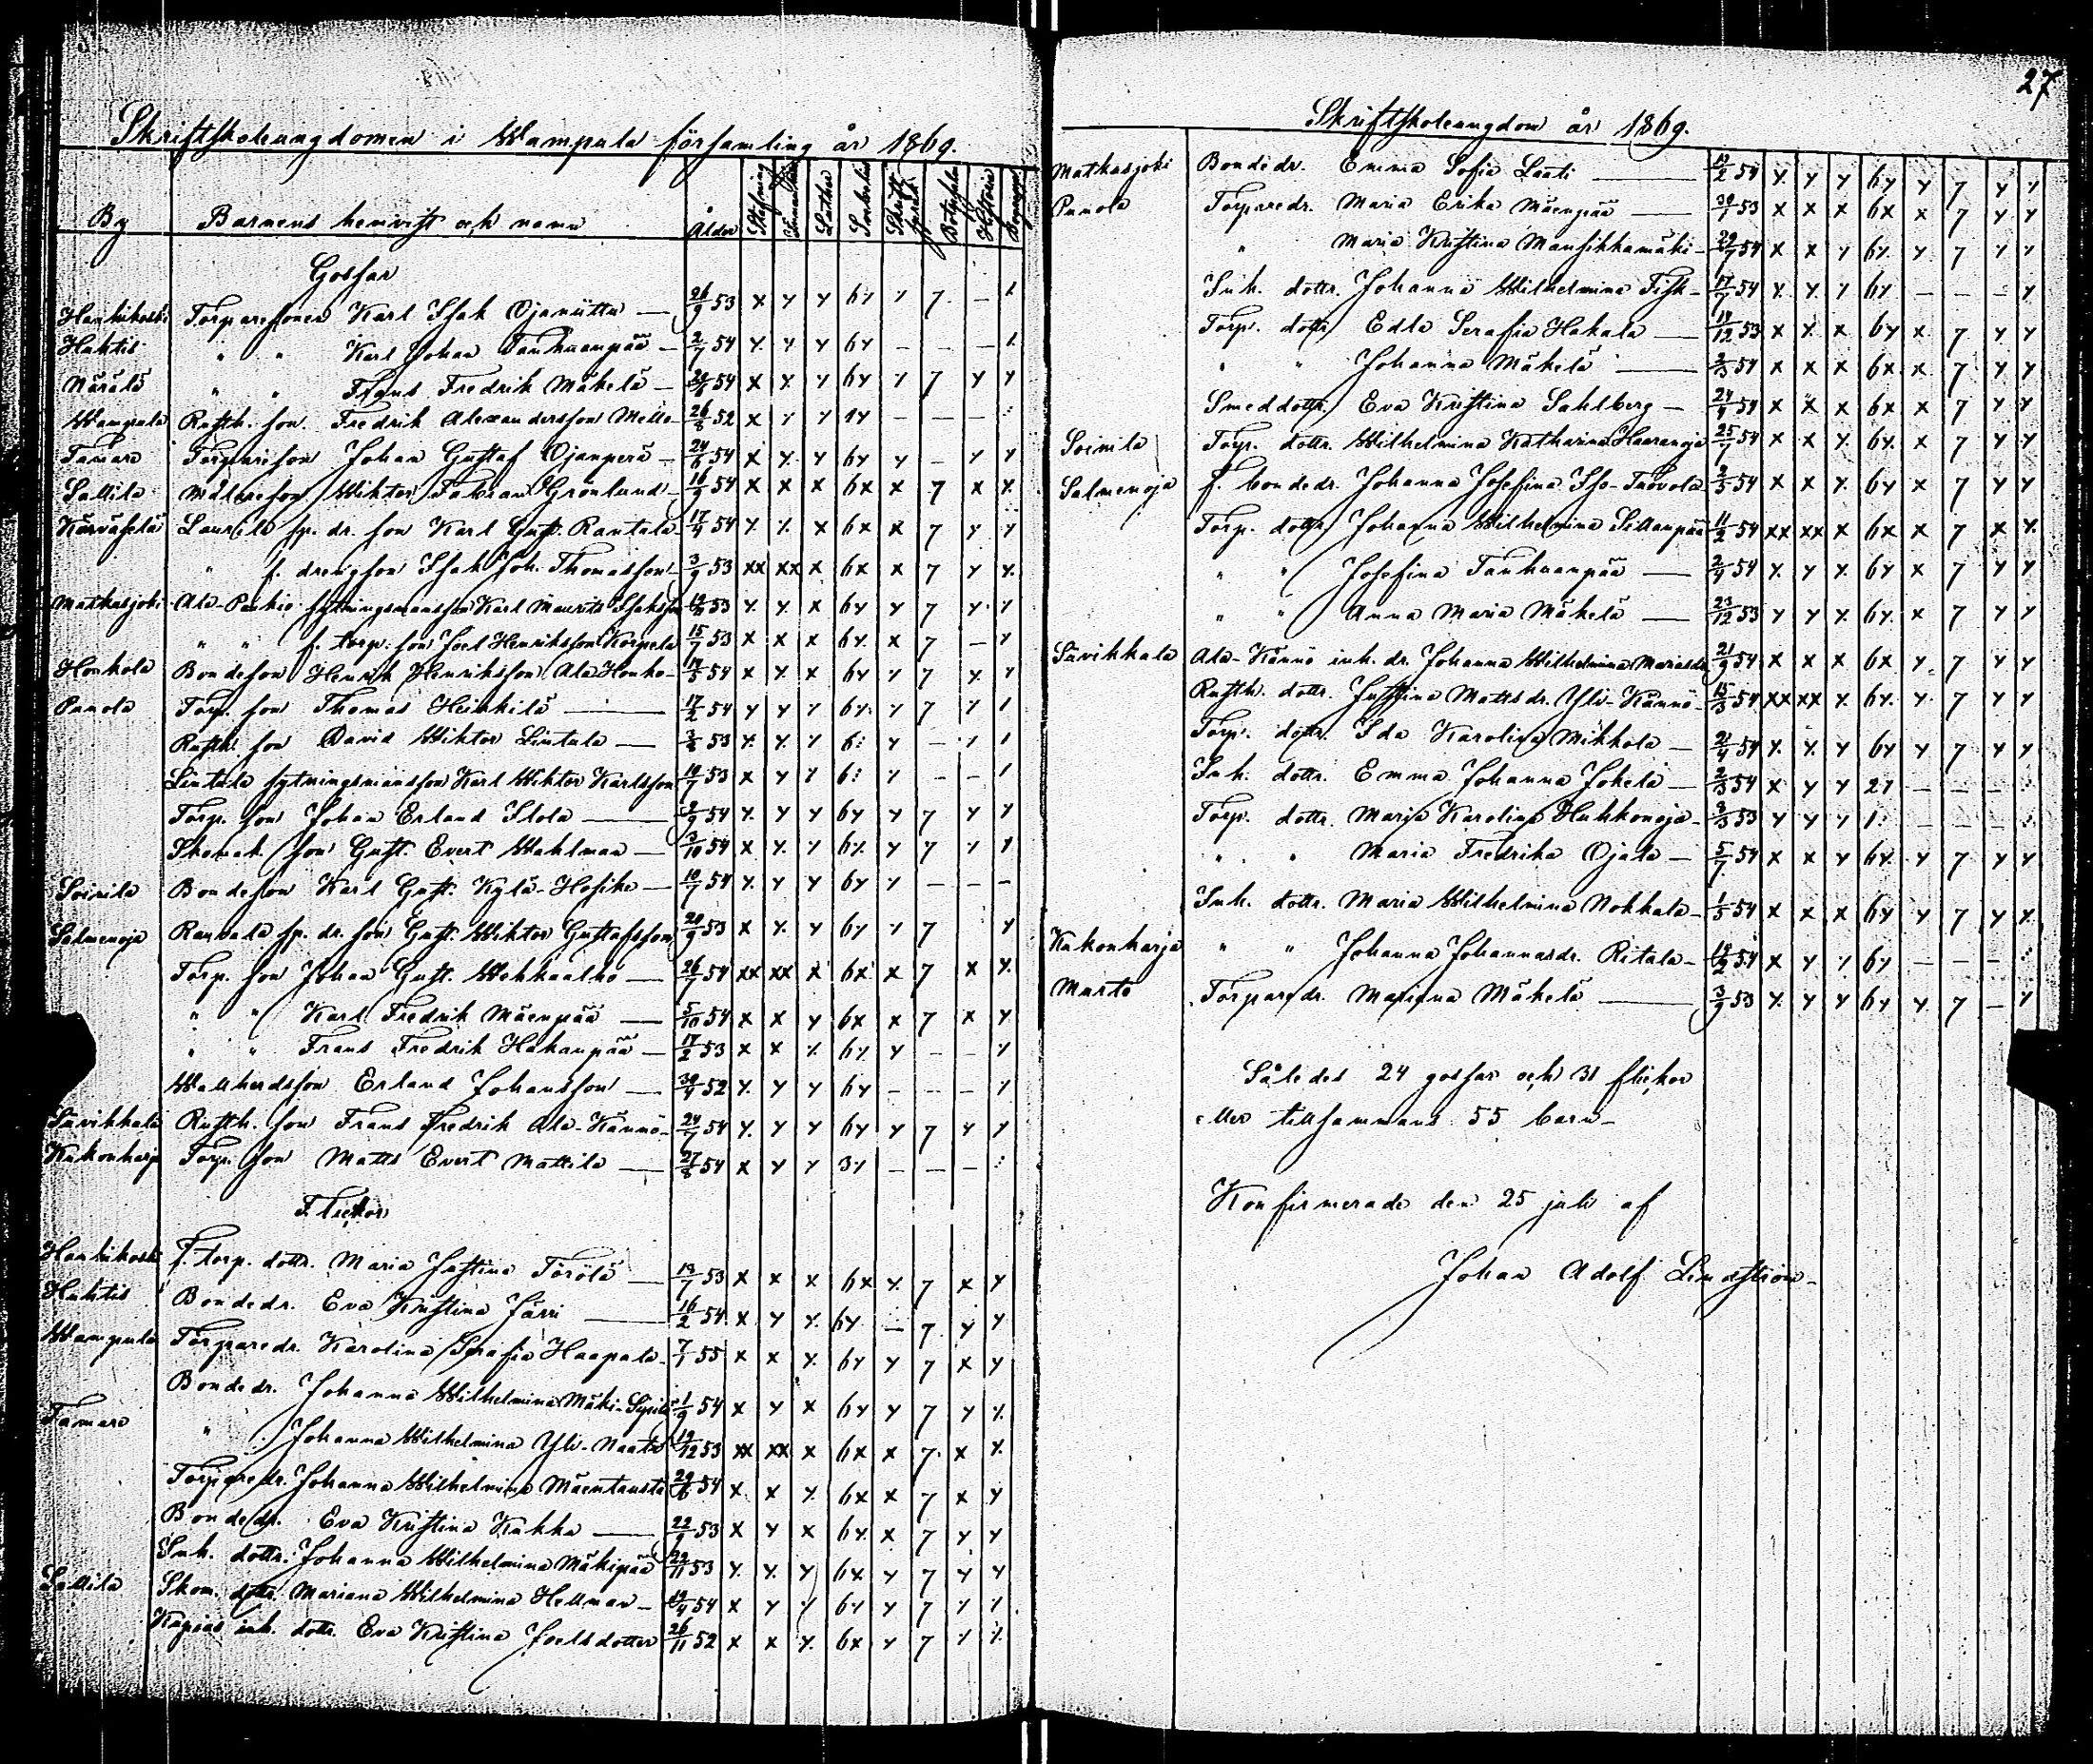 Skriftskoleungdomen i Wampula församling år 1869.
By Barnens hemvist och namn Ålder Stafning Innanläsn. Luther Svebelius Skrift språk Botpsalm Historia Begrepp
Gossar
Hankikoski Torparesonen Karl Isak Ojaniittu — 26/9 53 x y y 6y y 7 — y
Huhtis " " Karl Johan Tanhuanpää — 2/7 54 y y y 6y — — — y
Närälä " " Frans Fredrik Mäkelä — 54 x y y 6y y 7 y y
Wampula Rusth. son Fredrik Alexandersson Mello — 52 x y y 1y — — —
Tamare Torpareson Johan Gustaf Ojanperä — 24/6 54 x y y 6y y — y y
Sallila Målareson Wiktor Fabian Grönlund — 16/9 54 x x x 6x x 7 x y
Kärväselä Laurila sp. dr. son Karl Gust. Rantala — 17/9 54 y y x 6x x 7 y y
" f. drengson Isak Joh. Thomasson — 3/9 53 xx xx x 6x x 7 y y
Matkusjoki Ala-Paskio sytningsmansson Karl Maurits Isaksson 53 y y x 6y y 7 y y
" " f. torp. son Joel Henriksson Korpela 15/7 53 x x x 6y x 7 — y
Honkola Bondeson Henrik Henriksson Ala Honko — 54 x y x 6y y 7 y y
Punola Torp. son Thomas Heikkilä — 17/2 54 y y y 6y y 7 y y
Rusth. son David Wiktor Lintula — 53 y y y 6: y — y y
Lintula sytningsmansson Karl Wiktor Karlsson 53 x y y 6: y — — y
Torp. son Johan Erland Ilola — 54 y y y 6y y 7 y y
Skomak. son Gust. Evert Wahlman — 3/10 54 x y y 6y y 7 y y
Soinila Bondeson Karl Gust. Kylä-Hosike — 10/7 54 y y y 6y y — — —
Salmenoja Rauvola sp. dr. son Gust. Wiktor Gustafsson 53 x y y 6y y 7 y
Torp. son Johan Gust. Wehkaalho — 26/7 54 xx xx x 6x x 7 x y
" " Karl Fredrik Mäenpää — 5/10 54 x x y 6x x 7 x y
" " Frans Fredrik Hakanpää — 17/2 53 x x y 6y y — — y
Wallherdsson Erland Johansson — 52 y y y 6y — — — y
Sävikkala Rusth. son Frans Fredrik Ala-Kännö — 24/7 54 y y y 6y y 7 y y
Kukonharja Torp. son Matts Evert Mattila — 54 x y y 3y — — —
Flickor
Hankikoski F. torp. dottr. Maria Justina Törölä — 13/7 53 x x x 6x y 7 x y
Huhtis Bondedr. Eva Kristina Järvi — 16/2 54 x y y 6y — 7 y y
Wampula Torparedr. Karolina Serafia Haapala — 7/1 55 x x y 6y y 7 x y
Bondedr. Johanna Wilhelmina Mäki-Sipilä 1/9 54 x y x 6y y 7 y y
Tamare " Johanna Wilhelmina Yli-Naatu 19/12 53 xx xx x 6x x 7 x y
Torparedr. Johanna Wilhelmina Mäentausta 54 x x y 6x x 7 x y
Bondedr. Eva Kristina Kukka — 22/9 53 x y x 6y x 7 y y
Inh. dottr. Johanna Wilhelmina Mäkipää 22/11 53 y y y 6x y 7 y y
Sallila Skom. dottr. Mariana Wilhelmina Hellman — 54 x y y 6y y 7 y y
Kupias inh. dottr. Eva Kristina Joelsdotter 26/11 52 x x y 6x y 7 y y
27
Skriftskoleungdom år 1869.
Matkusjoki Bondedr. Emma Sofia Laati — 54 y y y 6y y 7 y y
Punola Torparedr. Maria Erika Mäenpää — 53 x x x 6x x 7 y y
" Maria Kristina Mansikkamäki — 54 x x y 6y y 7 y y
Inh. dottr. Johanna Wilhelmina Fisk — 54 y y y 6y — — — y
Torp. dottr. Edla Serafia Hakala — 53 x y x 6y x 7 y y
" " Johanna Mäkelä — 54 x x x 6x x 7 y y
Smeddottr. Eva Kristina Sahlberg — 54 x x x 6x x 7 y y
Soinila Torp. dottr. Wilhelmina Katharina Haaranoja 25/7 54 x x y 6y x 7 y y
Salmenoja f. bondedr. Johanna Josefina Iso-Tuovola 54 x x y 6y x 7 y y
Torp. dottr. Johanna Wilhelmina Sillanpää 11/2 54 xx xx x 6x x 7 x y
" " Josefina Tanhuanpää — 2/9 54 y y y 6y x 7 y y
" " Anna Maria Mäkelä — 23/12 53 y y y 6y x 7 y y
Sävikkala Ala-Kännö inh. dr. Johanna Wilhelmina Mariasdr. 21/9 54 x x x 6x y 7 y y
Rusth. dottr. Justina Mattsdr. Yli-Kännö — 15/3 54 xx xx y 6y y 7 y y
Torp. dottr. Ida Karolina Mikkola — 54 y y y 6y y 7 y y
Inh. dottr. Emma Johanna Jokela — 54 x y y 2y — — —
Torp. dottr. Maria Karolina Huhkonoja — 53 y y y 1: — — —
" " Maria Fredrika Ojala — 5/7 54 x x y 6y y 7 y y
Inh. dottr. Maria Wilhelmina Nokkala — 1/5 54 x x x 6y y 7 y y
Kukonharja " " Johanna Johannasdr. Ritala — 54 x y y 6y — — —
Murto Torparedr. Mariana Mäkelä — 3/9 53 y y y 6y y 7 — y
Således 24 gossar och 31 flickor
eller tillsammans 55 barn —
Konfirmerade den 25 juli af
Johan Adolf Lindström —